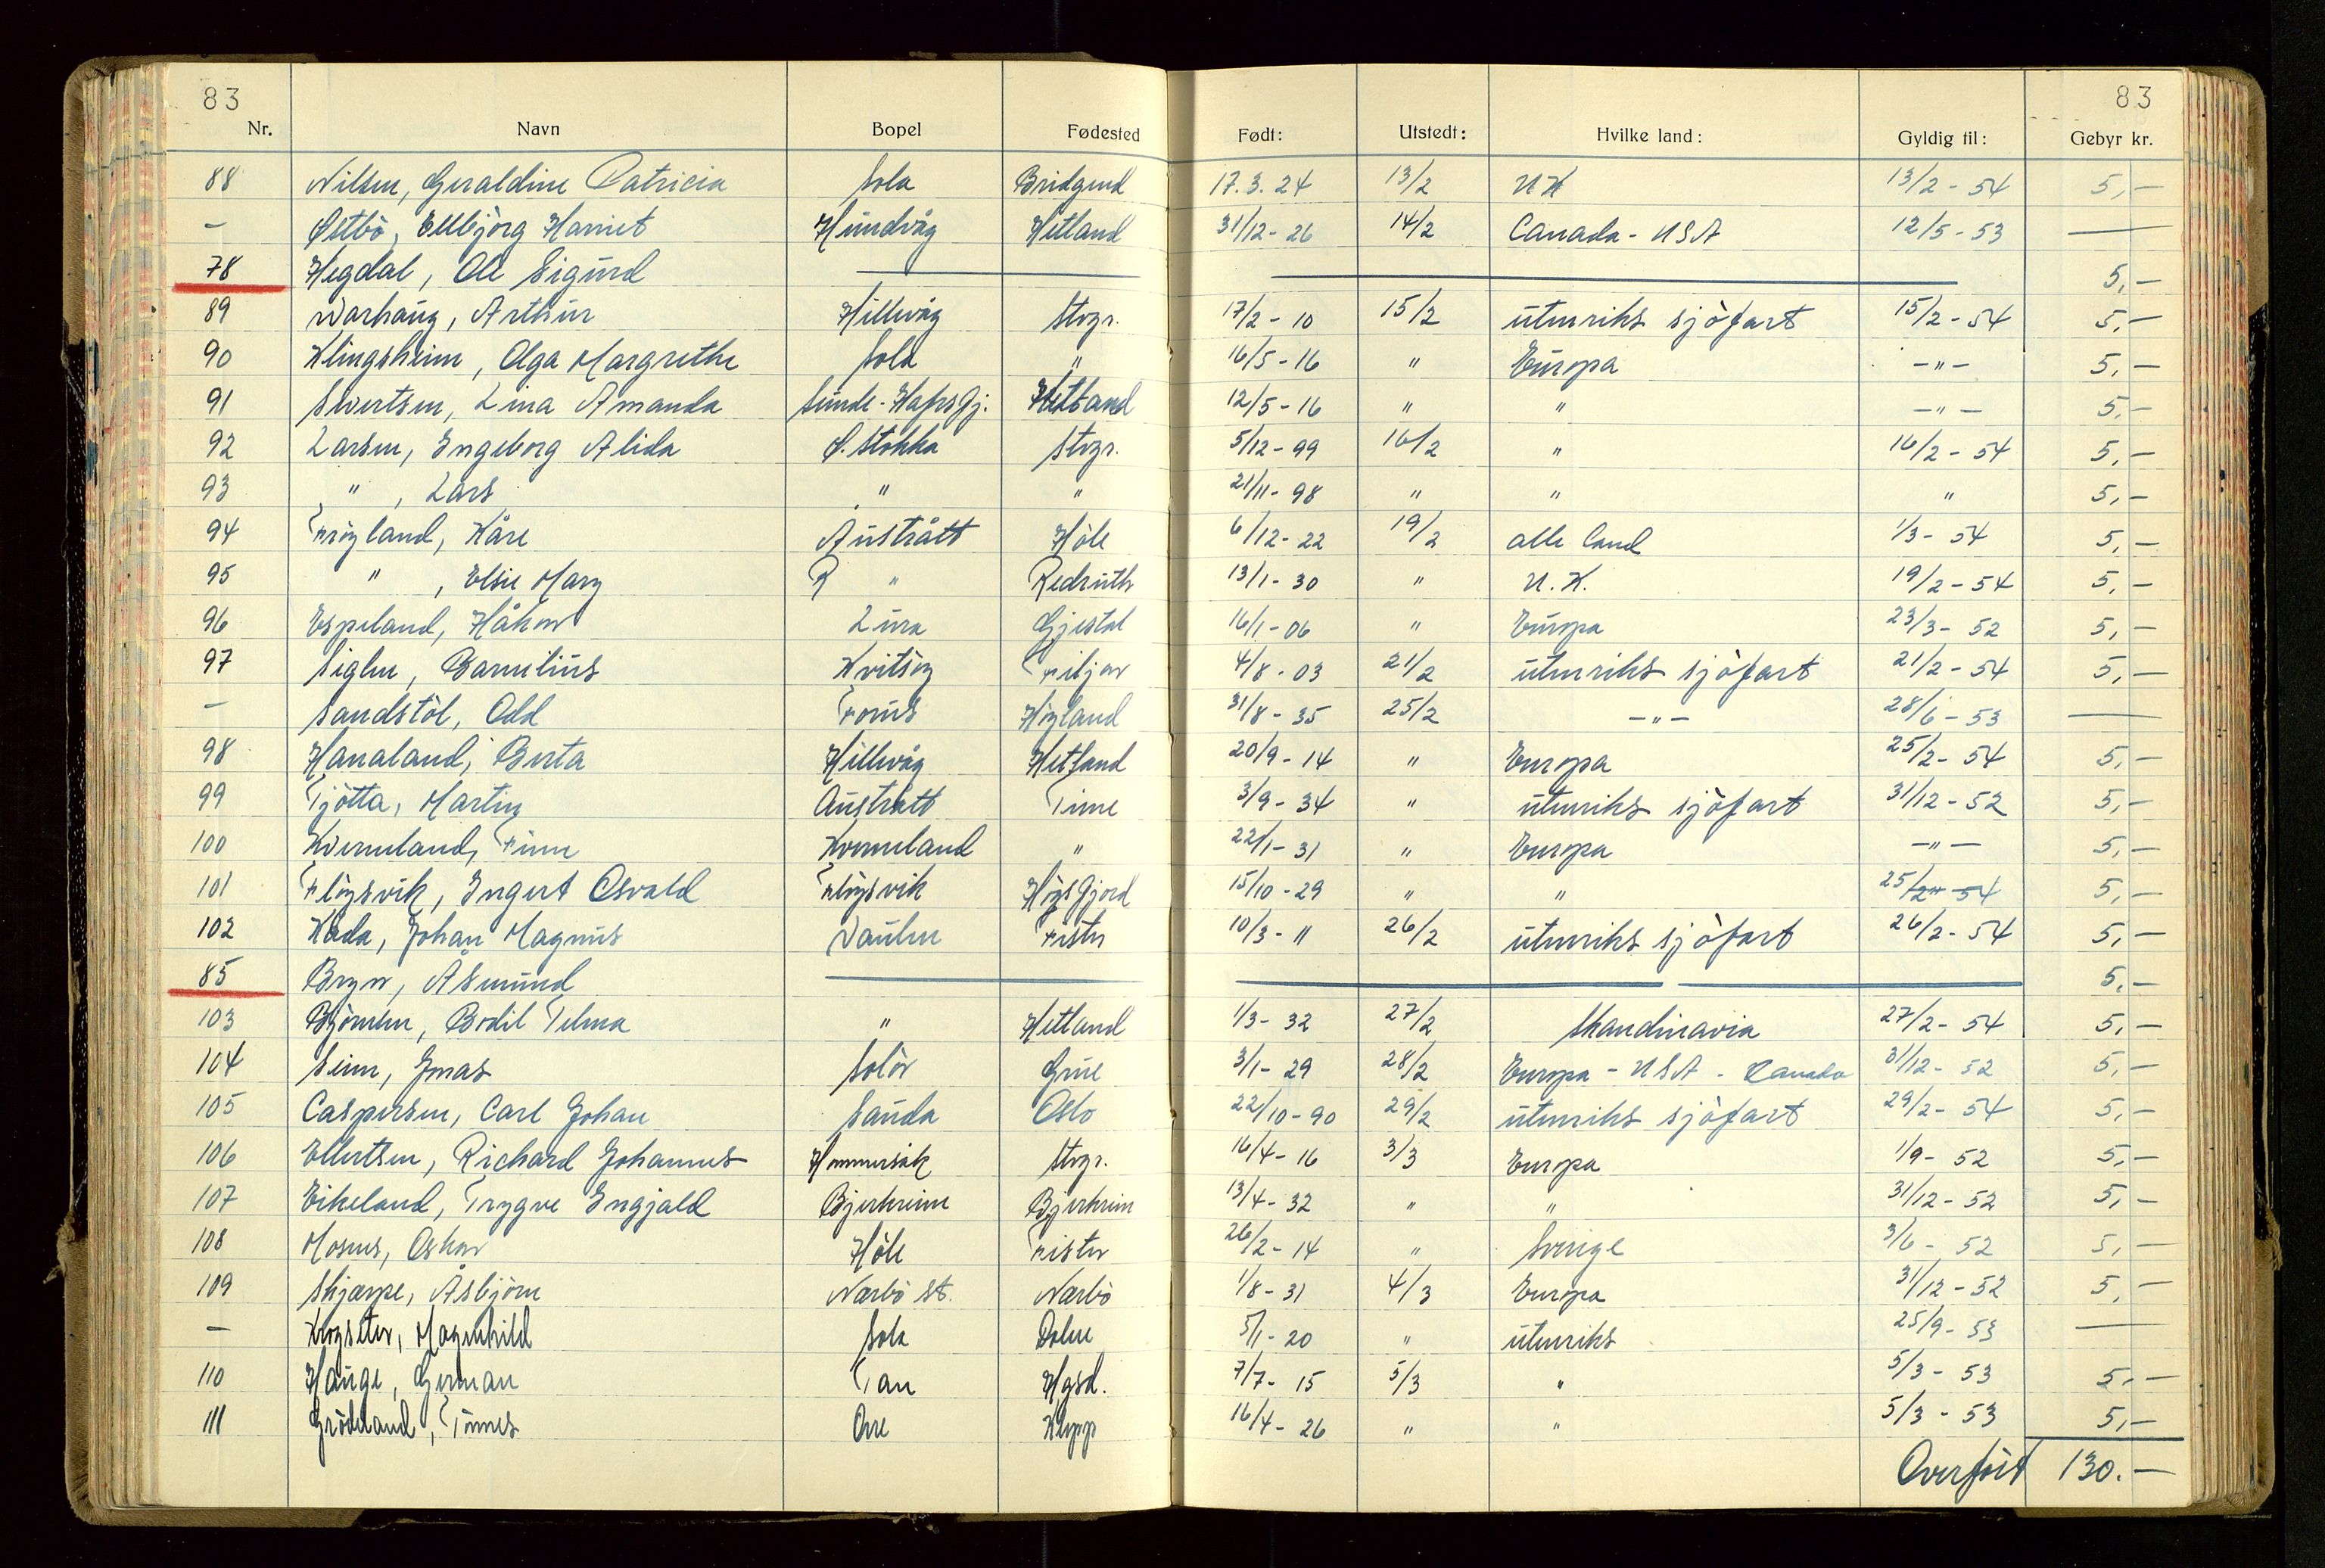 83 83
Nr. Navn Bopel Fødested Født: Utstedt: Hvilke land: Gyldig til: Gebyr kr.
88 Nilsen, Geraldine Patricia Sola Bridgend 17.3.24 13/2 UK 13/2-54 5,-
— Østbö, Ellbjörg Harriet Hundvåg Hetland 31/12-26 14/2 Canada - USA 12/5-53 —
78 Hegdal, Ole Sigurd — — 5,-
89 Varhaug, Arthur Hillevåg Stvgr. 17/2-10 15/2 utenriks sjöfart 15/2-54 5,-
90 Klingsheim, Olga Margrethe Sola " 16/5-16 " Europa -"- 5,-
91 Sivertsen, Lina Amanda Sunde-Hafrsfj. Hetland 12/5-16 " " -"- 5,-
92 Larsen, Engeborg Alida Ø. Stokka Stvgr. 5/12-99 16/2 " 16/2-54 5,-
93 " , Lars " " 21/11-98 " " " 5,-
94 Fröyland, Kåre Austrått Höle 6/12-22 19/2 alle land 1/3-54 5,-
95 " , Elsie Mary " Redruth 13/1-30 " U.K. 19/2-54 5,-
96 Espeland, Håkon Lura Gjestal 16/1-06 " Europa 23/3-52 5,-
97 Siglen, Barnilius Kvitsöy Fitjar 4/8-03 21/2 utenriks sjöfart 21/2-54 5,-
— Sandstöl, Odd Forus Höyland 31/8-35 25/2 -"- 28/6-53 —
98 Hanaland, Berta Hillevåg Hetland 20/9-14 " Europa 25/2-54 5,-
99 Tjötta, Martin Austrått Time 3/9-34 " utenriks sjöfart 31/12-52 5,-
100 Kverneland, Finn Kverneland " 22/1-31 " Europa -"- 5,-
101 Flöysvik, Ingert Osvald Flöysvik Högsfjord 15/10-29 " " 25/2-54 5,-
102 Kada, Johan Magnus Vaulen Fister 10/3-11 26/2 utenriks sjöfart 26/2-54 5,-
85 Bryn, Åsmund — — 5,-
103 Björnsen, Bodil Telma " Hetland 1/3-32 27/2 Skandinavia 27/2-54 5,-
104 Seim, Jonas Solör Grue 3/1-29 28/2 Europa - USA - Canada 31/12-52 5,-
105 Caspersen, Carl Johan Sauda Oslo 22/10-90 29/2 utenriks sjöfart 29/2-54 5,-
106 Ellertsen, Richard Johannes Hommersåk Stvgr. 16/4-16 3/3 Europa 1/9-52 5,-
107 Eikeland, Trygve Engjald Bjerkreim Bjerkreim 13/4-32 " " 31/12-52 5,-
108 Mosnes, Oskar Höle Fister 26/2-14 " Sverige 3/6-52 5,-
109 Skjærpe, Åsbjörn Nærbö st. Nærbö 1/8-31 4/3 Europa 31/12-52 5,-
— Magnhild Sola 5/1-20 " utenriks 25/9-53 —
110 Hauge, German Tau Hgsd. 7/7-15 5/3 " 5/3-53 5,-
111 Grödeland, Tönnes Orre Klepp 16/4-26 " " 5/3-53 5,-
Overfört 130.-